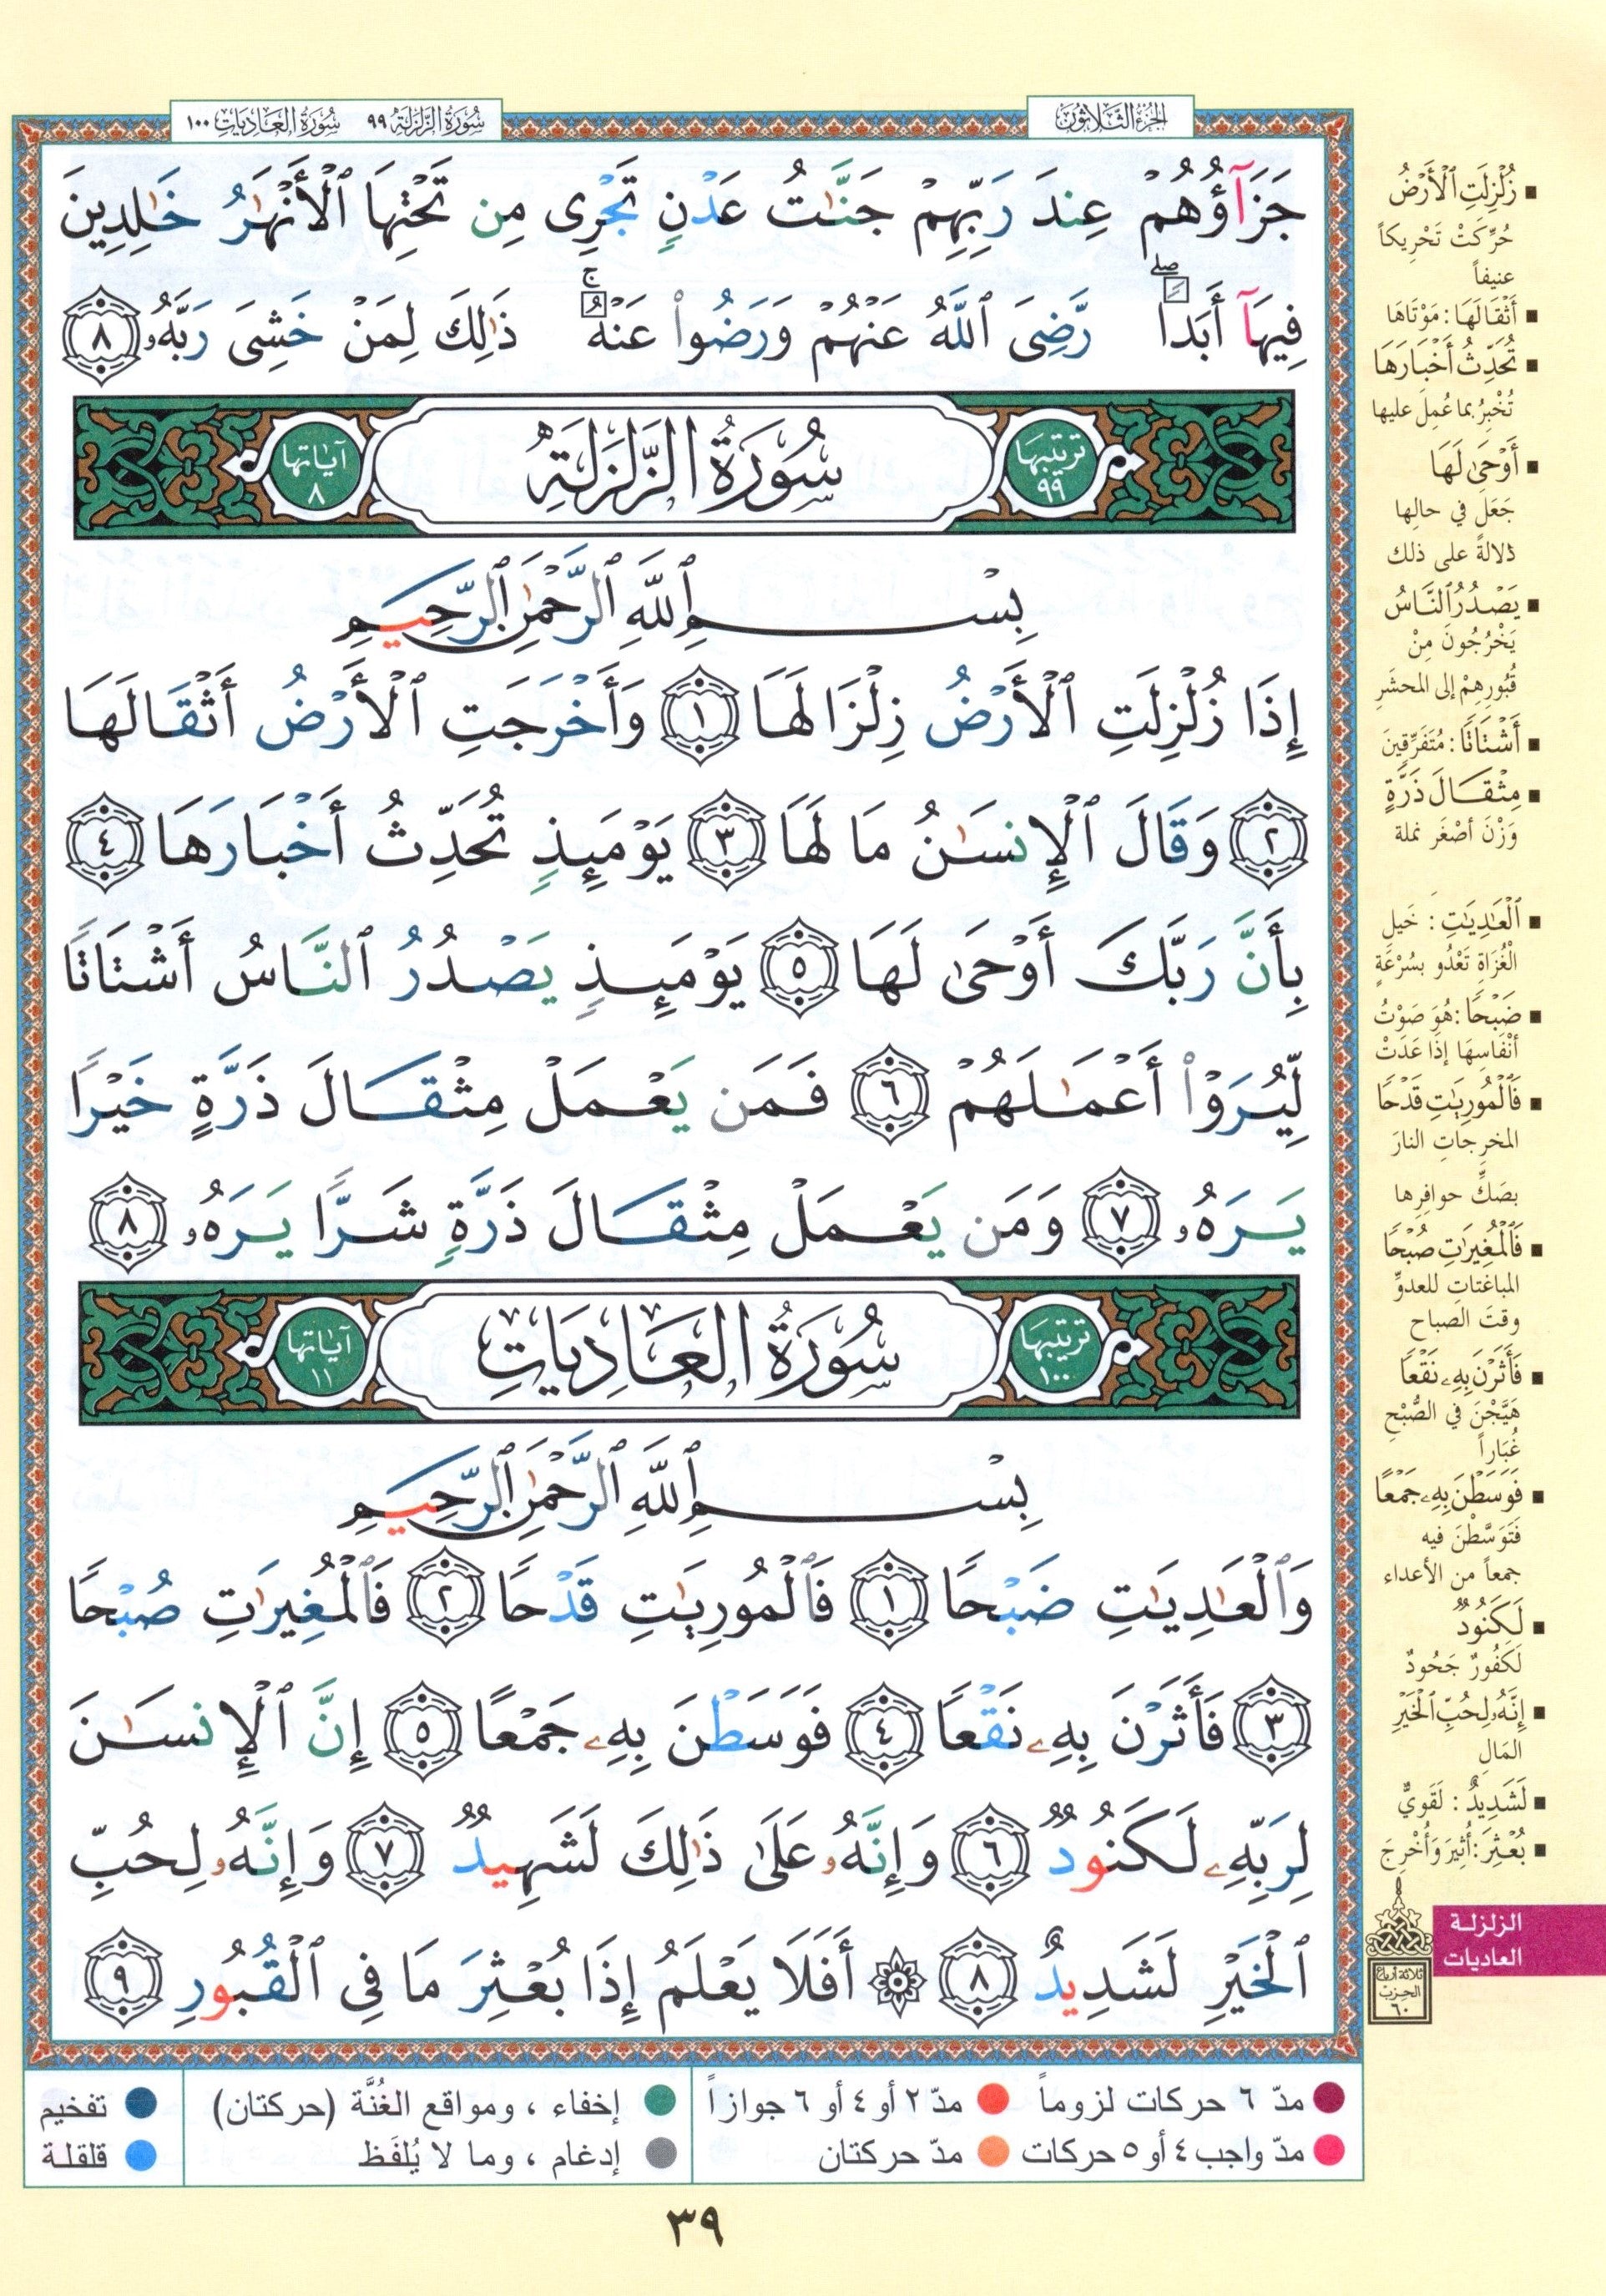 الجزء الثلاثون
سورة الزلزلة ٩٩ سورة العاديات ١٠٠
جَزَآؤُهُمْ عِندَ رَبِّهِمْ جَنَّٰتُ عَدْنٍ تَجْرِى مِن تَحْتِهَا ٱلْأَنْهَٰرُ خَٰلِدِينَ
فِيهَآ أَبَدًا ۖ رَّضِىَ ٱللَّهُ عَنْهُمْ وَرَضُوا۟ عَنْهُ ۚ ذَٰلِكَ لِمَنْ خَشِىَ رَبَّهُۥ ٨
ترتيبها ٩٩ سُورَةُ الزَّلْزَلَةِ آياتها ٨
بِسْمِ ٱللَّهِ ٱلرَّحْمَٰنِ ٱلرَّحِيمِ
إِذَا زُلْزِلَتِ ٱلْأَرْضُ زِلْزَالَهَا ١ وَأَخْرَجَتِ ٱلْأَرْضُ أَثْقَالَهَا
٢ وَقَالَ ٱلْإِنسَٰنُ مَا لَهَا ٣ يَوْمَئِذٍ تُحَدِّثُ أَخْبَارَهَا ٤
بِأَنَّ رَبَّكَ أَوْحَىٰ لَهَا ٥ يَوْمَئِذٍ يَصْدُرُ ٱلنَّاسُ أَشْتَاتًا
لِّيُرَوْا۟ أَعْمَٰلَهُمْ ٦ فَمَن يَعْمَلْ مِثْقَالَ ذَرَّةٍ خَيْرًا
يَرَهُۥ ٧ وَمَن يَعْمَلْ مِثْقَالَ ذَرَّةٍ شَرًّا يَرَهُۥ ٨
ترتيبها ١٠٠ سُورَةُ العَادِيَاتِ آياتها ١١
بِسْمِ ٱللَّهِ ٱلرَّحْمَٰنِ ٱلرَّحِيمِ
وَٱلْعَٰدِيَٰتِ ضَبْحًا ١ فَٱلْمُورِيَٰتِ قَدْحًا ٢ فَٱلْمُغِيرَٰتِ صُبْحًا
٣ فَأَثَرْنَ بِهِۦ نَقْعًا ٤ فَوَسَطْنَ بِهِۦ جَمْعًا ٥ إِنَّ ٱلْإِنسَٰنَ
لِرَبِّهِۦ لَكَنُودٌ ٦ وَإِنَّهُۥ عَلَىٰ ذَٰلِكَ لَشَهِيدٌ ٧ وَإِنَّهُۥ لِحُبِّ
ٱلْخَيْرِ لَشَدِيدٌ ٨ ۞ أَفَلَا يَعْلَمُ إِذَا بُعْثِرَ مَا فِى ٱلْقُبُورِ ٩
▪ زُلْزِلَتِ ٱلْأَرْضُ
حُرِّكَتْ تَحْرِيكاً
عنيفاً
▪ أَثْقَالَهَا : مَوْتَاهَا
▪ تُحَدِّثُ أَخْبَارَهَا
تُخْبِرُ بما عُمِلَ عليها
▪ أَوْحَىٰ لَهَا
جَعَلَ في حالِها
دَلالةً على ذلك
▪ يَصْدُرُ ٱلنَّاسُ
يَخْرُجُونَ مِنْ
قُبُورِهِمْ إلى المحشَرِ
▪ أَشْتَاتًا : مُتَفَرِّقِينَ
▪ مِثْقَالَ ذَرَّةٍ
وَزْنَ أصْغَرِ نملة
▪ ٱلْعَٰدِيَٰتِ : خَيلِ
الْغُزَاةِ تَعْدُو بسُرْعَةٍ
▪ ضَبْحًا : هُوَ صَوْتُ
أنْفَاسِهَا إذَا عَدَتْ
▪ فَٱلْمُورِيَٰتِ قَدْحًا
المخرِجاتِ النارَ
بصَكِّ حوافِرِها
▪ فَٱلْمُغِيرَٰتِ صُبْحًا
المباغتاتِ للعدوِّ
وقتَ الصباح
▪ فَأَثَرْنَ بِهِۦ نَقْعًا
هَيَّجْنَ في الصُّبْحِ
غُبَاراً
▪ فَوَسَطْنَ بِهِۦ جَمْعًا
فَتَوَسَّطْنَ فيه
جمعاً من الأعداء
▪ لَكَنُودٌ
لَكَفُورٌ جَحُودٌ
▪ إِنَّهُۥ لِحُبِّ ٱلْخَيْرِ
المَالِ
▪ لَشَدِيدٌ : لَقَوِيٌّ
▪ بُعْثِرَ : أُثِيرَ وَأُخْرِجَ
الزلزلة
العاديات
ثلاثة أرباع
الحزب
٦٠
مدّ ٦ حركات لزوماً مدّ ٢ أو ٤ أو ٦ جوازاً إخفاء ، ومواقع الغُنَّة (حركتان) تفخيم
مدّ واجب ٤ أو ٥ حركات مدّ حركتان إدغام ، وما لا يُلفَظ قلقلة
٣٩